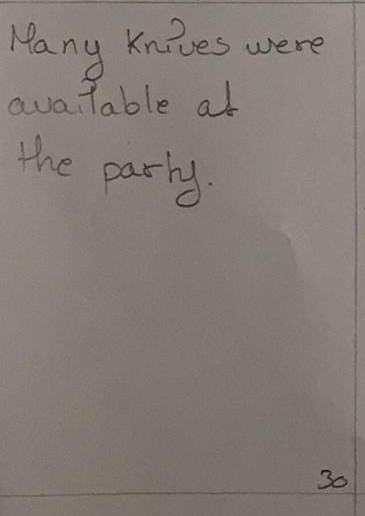 Many knives were
available at
the party.
30